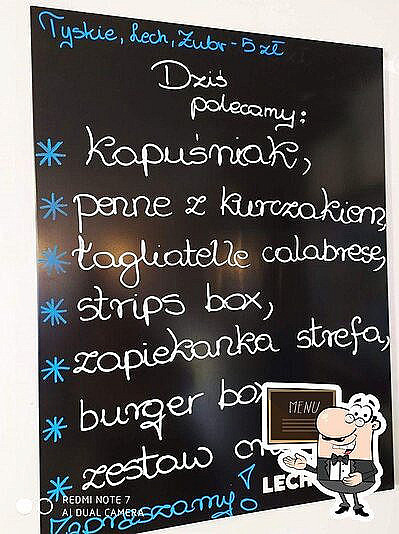 Tyskie, Lech, Żubr - 5 zł
Dziś
polecamy:
* kapuśniak,
* penne z kurczakiem,
* tagliatelle calabrese,
* strips box,
* zapiekanka strefa,
* burger box
* zestaw
Zapraszamy!
LECH
MENU
REDMI NOTE 7
AI DUAL CAMERA